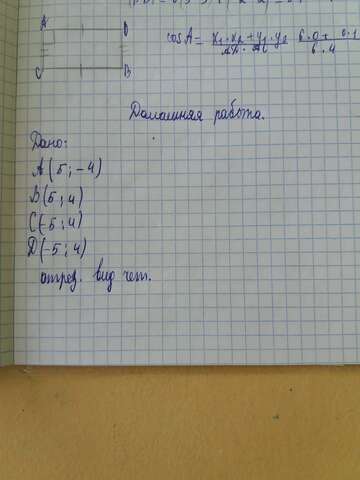 A D
cosA = x₁·x₂ + y₁·y₂ / AD · AC 6·0+ 0·1 / 6·4
C B
Домашняя работа.
Дано:
A(5; -4)
B(5; 4)
C(-5; 4)
D(-5; 4)
опред. вид чет.